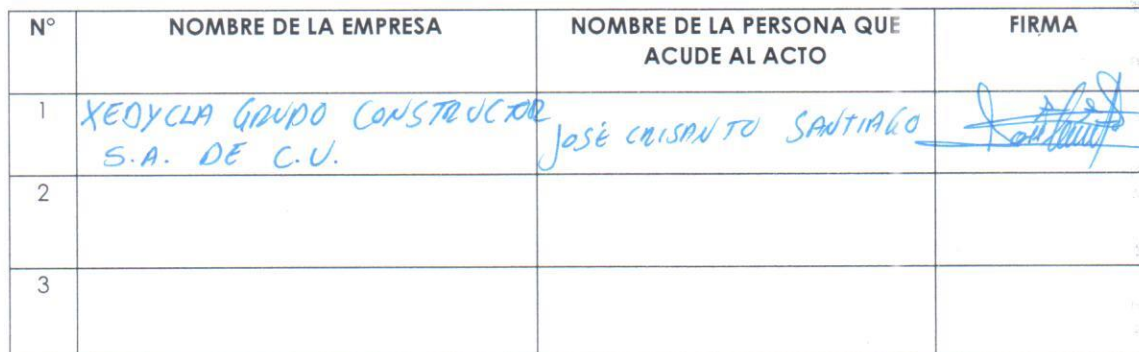 N° NOMBRE DE LA EMPRESA NOMBRE DE LA PERSONA QUE ACUDE AL ACTO FIRMA
1 XEDYCLA GRUPO CONSTRUCTOR JOSÉ CRISANTO SANTIAGO
S.A. DE C.V.
2
3